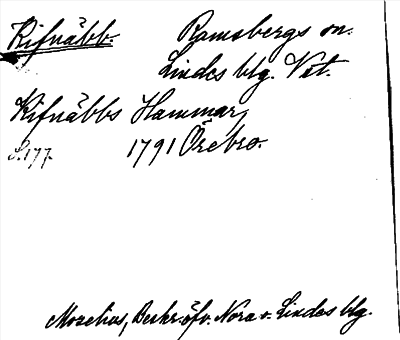 Kifnäbb. Ramsbergs sn.
Lindes blg. Vstm.
Kifnäbbs Hammar,
S. 177. 1791 Örebro.
Mozelius, Beskr. öfv. Nora o. Lindes blg.